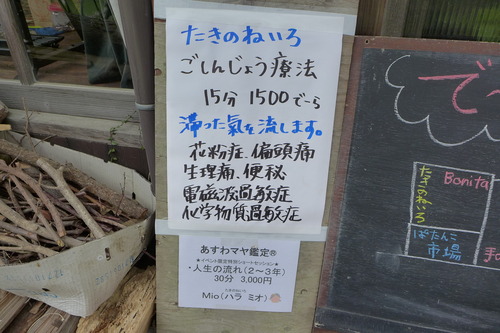 たきのねいろ
ごしんじょう療法
15分 1500でーら
滞った氣を流します。
花粉症、偏頭痛
生理痛、便秘
電磁波過敏症
化学物質過敏症
あすわマヤ鑑定®
★イベント限定特別ショートセッション★
・人生の流れ(2～3年)
30分 3,000円
たきのねいろ
Mio(ハラ ミオ)
で
たきのねいろ
Bonita
ぱたんこ
市場